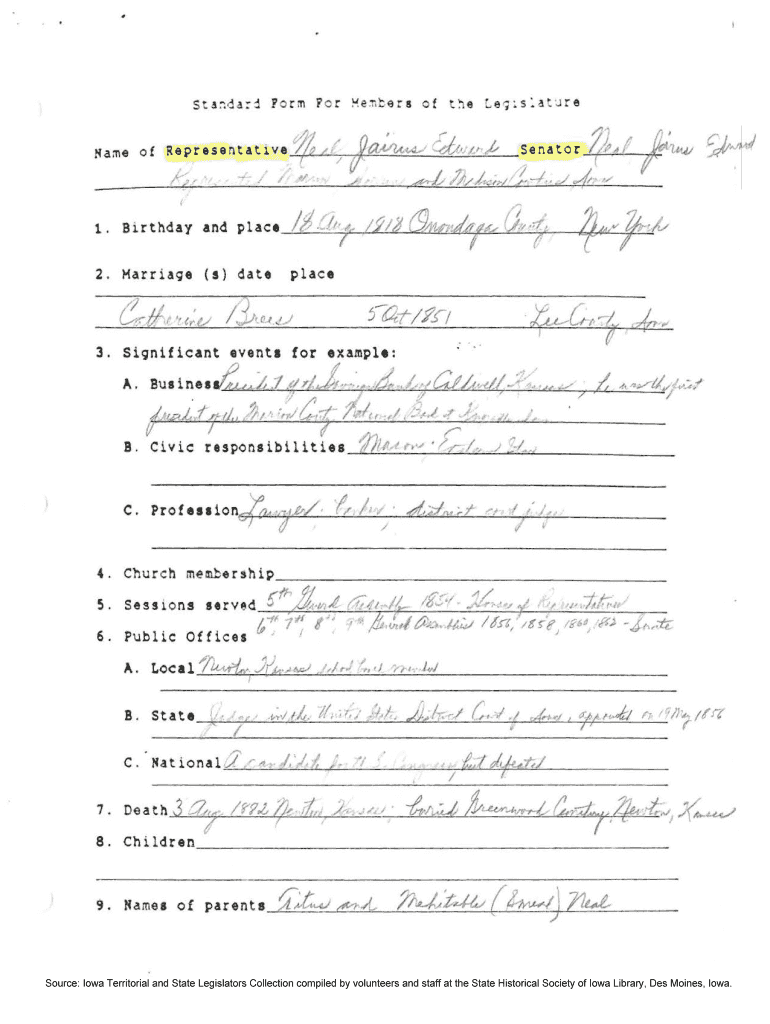 Standard Form For Members of the Legislature
Name of Representative Neal, Jairus Edward Senator Neal Jairus Edward
Represented Marion and Madison Counties Iowa
1. Birthday and place 18 Aug 1818 Onondaga County, New York
2. Marriage (s) date place
Catherine Brees 5 Oct 1851 Lee County, Iowa
3. Significant events for example:
A. Business President of the Savings Bank of Caldwell, Kansas; he was the first
president of the Marion County National Bank of Knoxville
B. Civic responsibilities Mason
C. Profession Lawyer; banker; district court judge
4. Church membership
5. Sessions served 5th General Assembly 1854 - House of Representatives
6th, 7th, 8th, 9th General Assemblies 1856, 1858, 1860, 1862 - Senate
6. Public Offices
A. Local Newton, Kansas school board member
B. State Judge in the United States District Court of Iowa, appointed on 19 May 1856
C. National A candidate for U.S. Congress, but defeated
7. Death 3 Aug 1882 Newton, Kansas; buried Greenwood Cemetery, Newton, Kansas
8. Children
9. Names of parents Titus and Mehitable (Smeal) Neal
Source: Iowa Territorial and State Legislators Collection compiled by volunteers and staff at the State Historical Society of Iowa Library, Des Moines, Iowa.